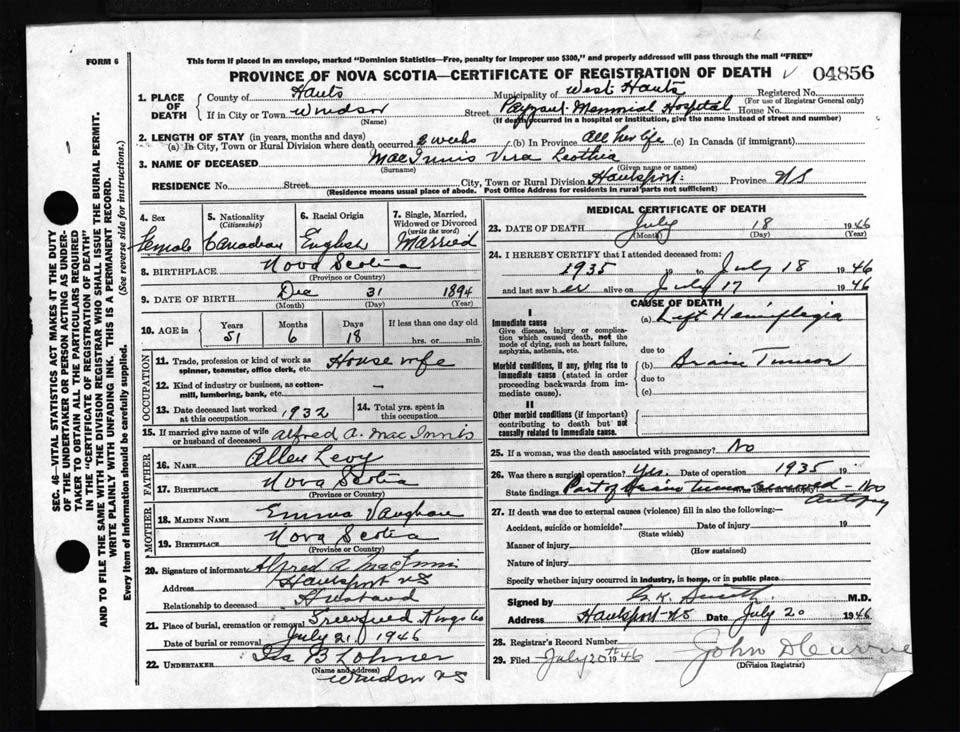 FORM 6
This form if placed in an envelope, marked "Dominion Statistics—Free, penalty for improper use $300," and properly addressed will pass through the mail "FREE"
PROVINCE OF NOVA SCOTIA—CERTIFICATE OF REGISTRATION OF DEATH
04856
SEC. 46—VITAL STATISTICS ACT MAKES IT THE DUTY
OF THE UNDERTAKER OR PERSON ACTING AS UNDER-
TAKER TO OBTAIN ALL THE PARTICULARS REQUIRED
IN THE "CERTIFICATE OF REGISTRATION OF DEATH"
AND TO FILE THE SAME WITH THE DIVISION REGISTRAR WHO SHALL ISSUE THE BURIAL PERMIT.
WRITE PLAINLY WITH UNFADING INK. THIS IS A PERMANENT RECORD.
Every item of information should be carefully supplied. (See reverse side for instructions.)
1. PLACE OF DEATH
County of Hants Municipality of West Hants Registered No.
(For use of Registrar General only)
If in City or Town Windsor Street Payzant Memorial Hospital House No.
(Name) (If death occurred in a hospital or institution, give the name instead of street and number)
2. LENGTH OF STAY (in years, months and days)
(a) In City, Town or Rural Division where death occurred 2 weeks (b) In Province All her life (c) In Canada (if immigrant)
3. NAME OF DECEASED MacInnis Vera
(Surname) (Given name or names)
RESIDENCE No. Street City, Town or Rural Division Hantsport. Province NS
(Residence means usual place of abode. Post Office Address for residents in rural parts not sufficient)
4. Sex Female
5. Nationality (Citizenship) Canadian
6. Racial Origin English
7. Single, Married, Widowed or Divorced (write the word) Married
8. BIRTHPLACE Nova Scotia
(Province or Country)
9. DATE OF BIRTH Dec 31 1894
(Month) (Day) (Year)
10. AGE in Years 51 Months 6 Days 18 If less than one day old hrs. or min.
OCCUPATION
11. Trade, profession or kind of work as spinner, teamster, office clerk, etc. House wife
12. Kind of industry or business, as cotton-mill, lumbering, bank, etc. —
13. Date deceased last worked at this occupation 1932
14. Total yrs. spent in this occupation
15. If married give name of wife or husband of deceased Alfred A. MacInnis
FATHER
16. Name Allen Levy
17. Birthplace Nova Scotia
(Province or Country)
MOTHER
18. MAIDEN NAME Emma Vaughan
19. BIRTHPLACE Nova Scotia
(Province or Country)
20. Signature of informant Alfred A. MacInnis
Address Hantsport NS
Relationship to deceased Husband
21. Place of burial, cremation or removal Greenfield Kings Co
Date of burial or removal July 21 1946
22. UNDERTAKER Ira B Lohnes
(Name and address) Windsor NS
MEDICAL CERTIFICATE OF DEATH
23. DATE OF DEATH July 18 1946
(Month) (Day) (Year)
24. I HEREBY CERTIFY that I attended deceased from:
1935 19 to July 18 1946
and last saw her alive on July 17 1946
CAUSE OF DEATH
I
Immediate cause
Give disease, injury or complication which caused death, not the mode of dying, such as heart failure, asphyxia, asthenia, etc.
(a) Left Hemiplegia
due to
Morbid conditions, if any, giving rise to immediate cause (stated in order proceeding backwards from immediate cause).
(b) Brain Tumor
due to
(c)
II
Other morbid conditions (if important) contributing to death but not causally related to immediate cause.
25. If a woman, was the death associated with pregnancy? No
26. Was there a surgical operation? Yes. Date of operation 1935 19
State findings Part of brain tumor removed — No autopsy
27. If death was due to external causes (violence) fill in also the following:—
Accident, suicide or homicide? Date of injury 19
(State which)
Manner of injury
(How sustained)
Nature of injury
Specify whether injury occurred in industry, in home, or in public place
Signed by G.K. Smith M.D.
Address Hantsport NS Date July 20 1946
28. Registrar's Record Number
29. Filed July 20th 1946 John D Currie
(Division Registrar)